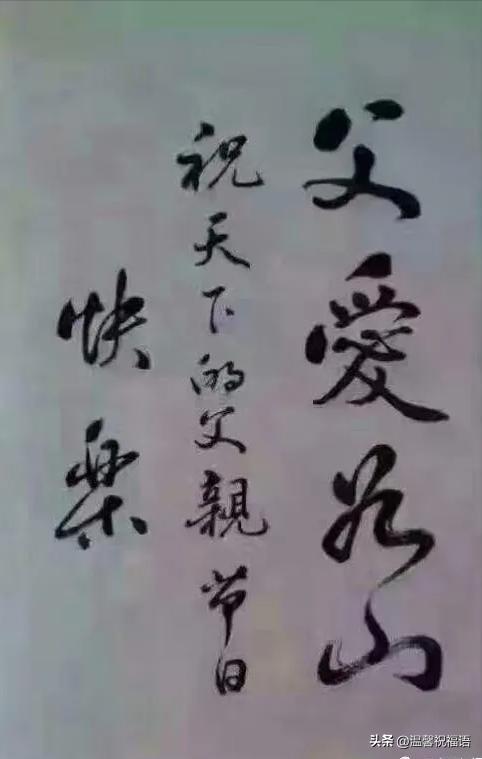 父愛如山
祝天下的父親节日
快樂
头条 @温馨祝福语